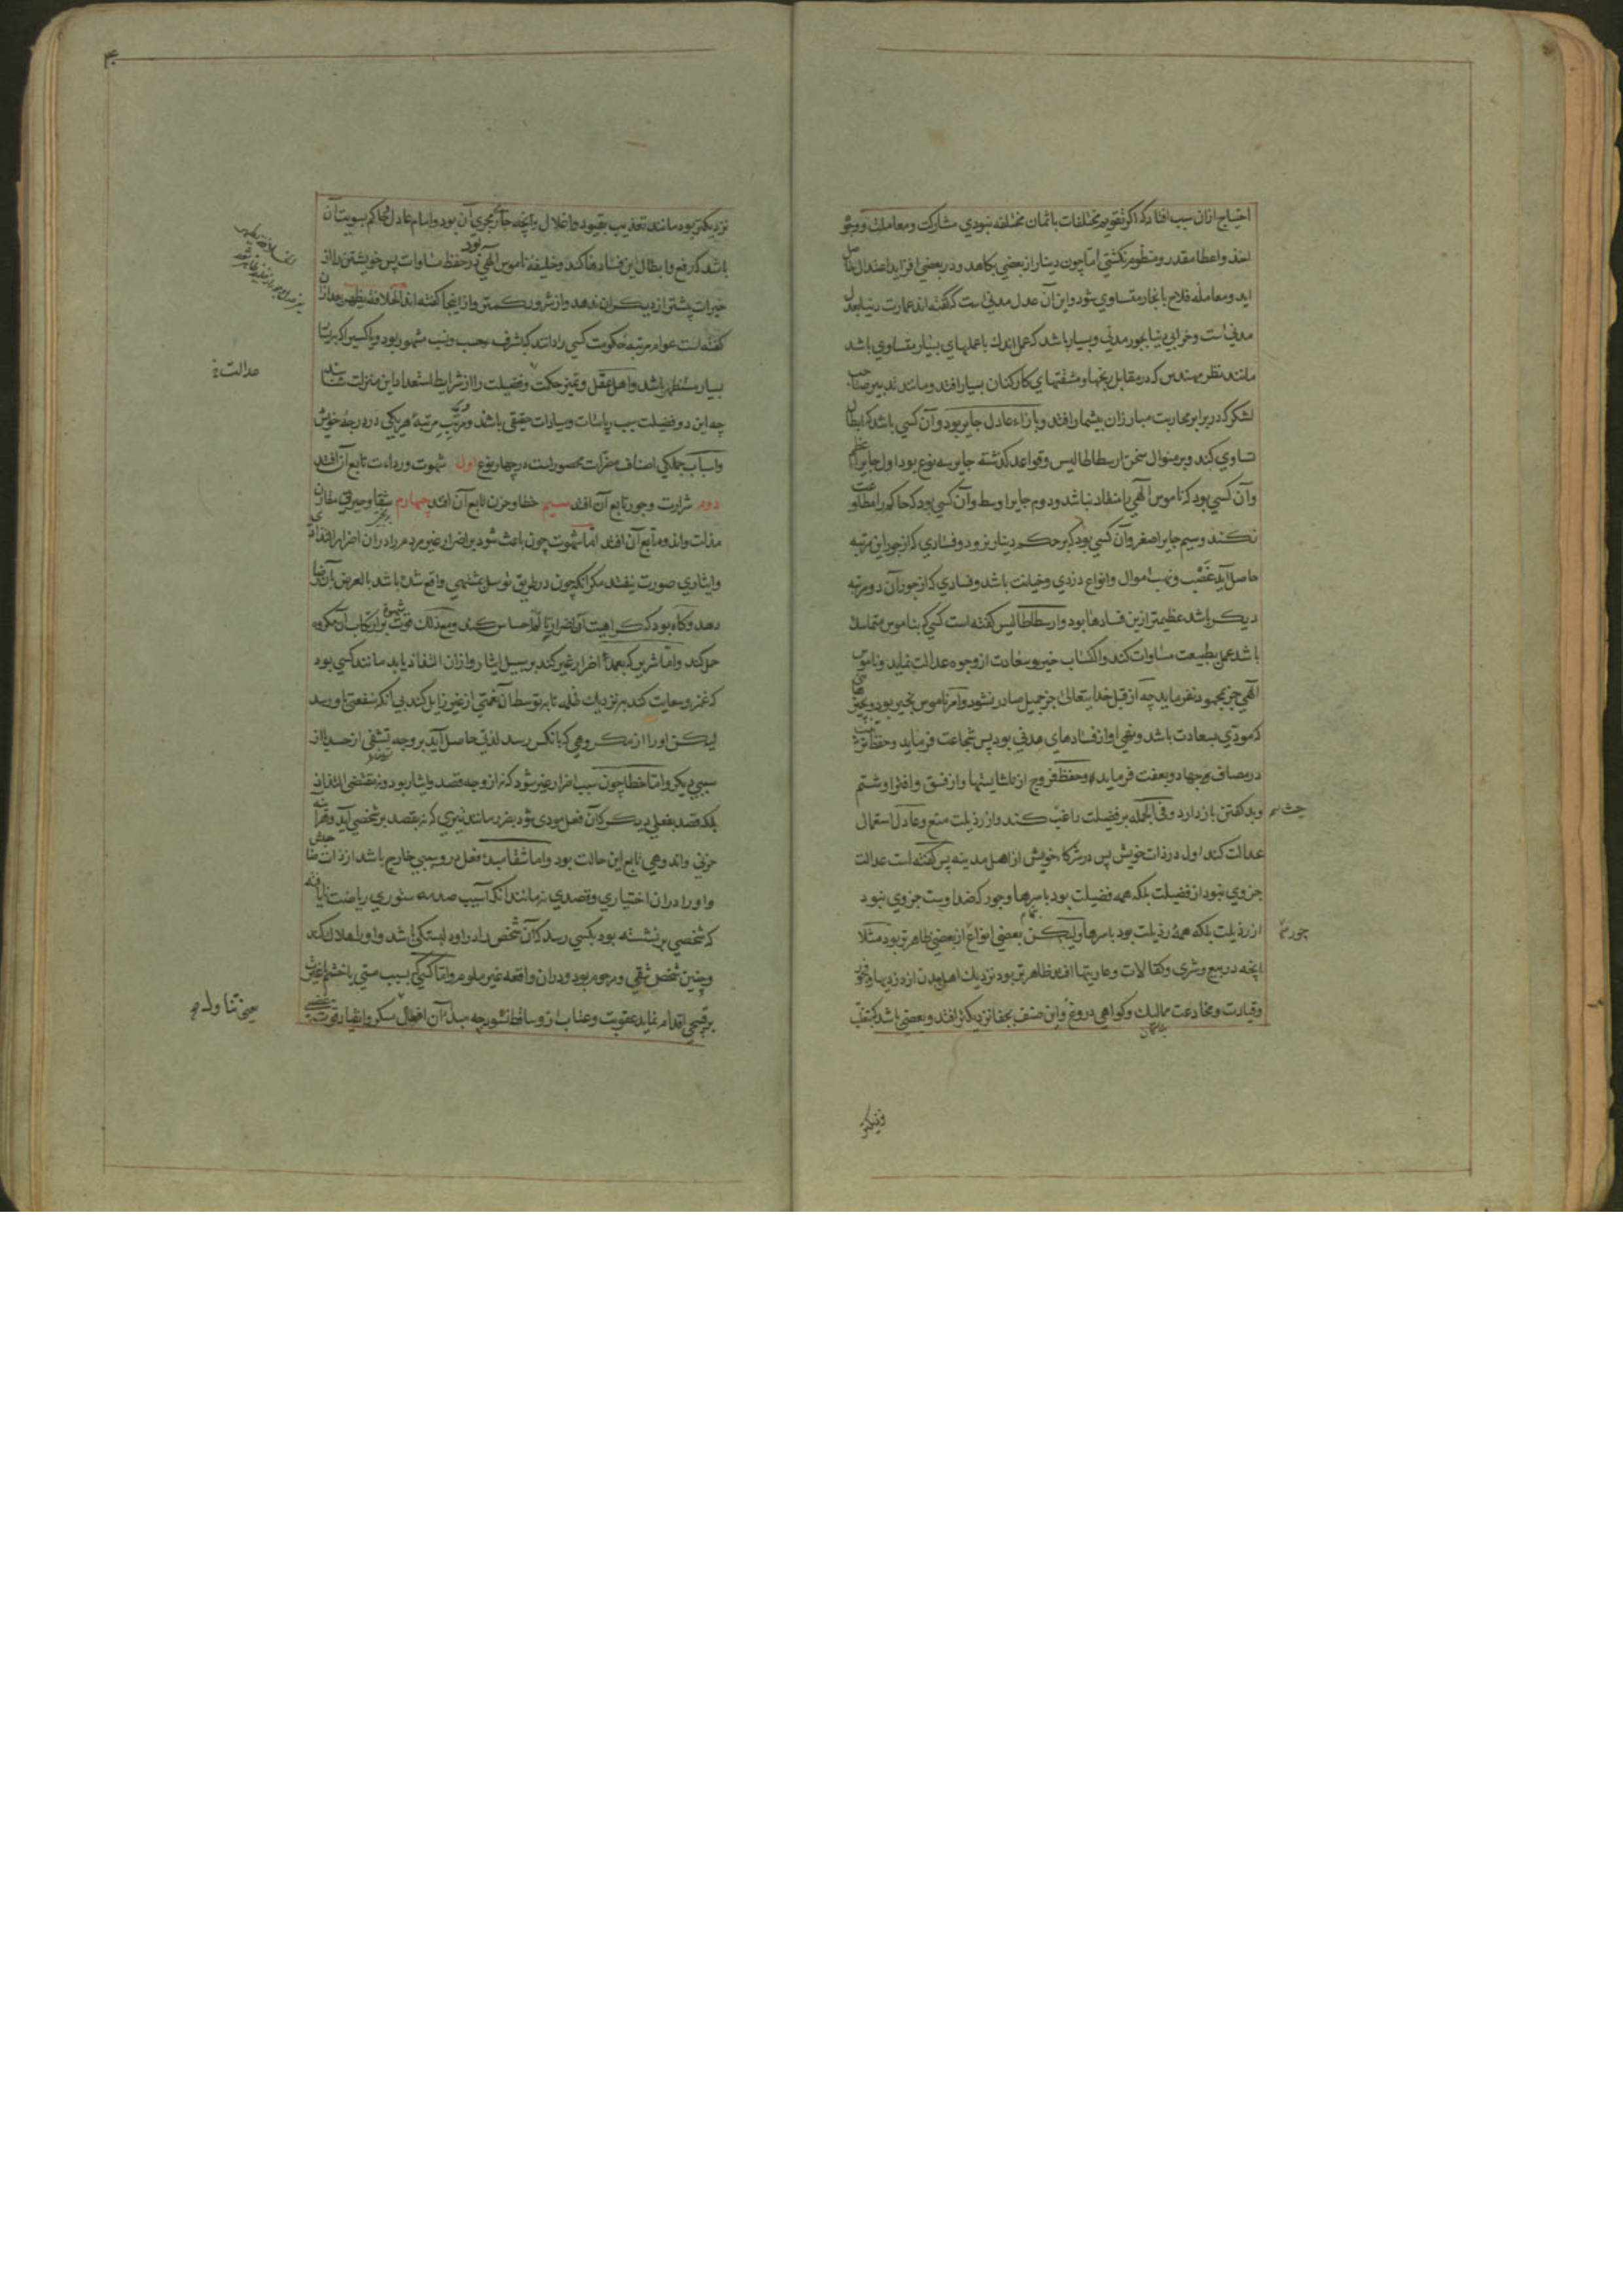 احتیاج ازان سبب افتاد که اگر تقویم مختلفات باثمان مختلفه نبودی مشارکت ومعاملت و وجوه
اخذ واعطا مقدر ومنظوم نکشتی اما چون دینار از بعضی بکاهد ودر بعضی افزاید اعتدال حاصل
اید ومعامله فلاح با نجار متساوی شود واین آن عدل مدنی است که کفته اند عمارت دنیا بعدل
مدنی است وخرابی دنیا بجور مدنی وبسیار باشد که عمل اندك با عملهای بسیار متساوی باشد
مانند نظر مهندس که در مقابل رنجها ومشقتهای کارکنان بسیار افتد ومانند تدبیر صاحب
لشکر که در برابر محاربت مبارزان بیشمار افتد وبازاء عادل جایر بود وآن کسی باشد که ابطال
تساوی کند وبر منوال سخن ارسطاطالیس وقواعد کذشته جایر سه نوع بود اول جایر اعظم
وآن کسی بود که ناموس الهی را منقاد نباشد ودوم جایر اوسط وآن کسی بود که حاکم را مطاوعت
نکند وسیم جایر اصغر وآن کسی بود که بر حکم دینار نرود وفسادی که از جور این مرتبه
حاصل آید غصب ونهب اموال وانواع دزدی وخیانت باشد وفسادی که از جور آن دو مرتبه
دیکر باشد عظیمتر ازین فسادها بود وارسطاطالیس کفته است کسی که بناموس متمسك
باشد عمل بطبیعت مساوات کند واکتساب خیر وسعادت از وجوه عدالت نماید وناموس
الهی جز بمحمود نفرماید چه از قبل خدایتعالی جز جمیل صادر نشود وامر ناموس بخیر بود وبچیزهائی
که مودی بسعادت باشد ونهی او از فسادهای مدنی بود پس شجاعت فرماید وحفظ ترتیب
در مصاف وجهاد وبعفت فرماید وحفظ فروج از ناشایستها واز فسق وافترا وشتم
وبد کفتن باز دارد وفی الجمله بر فضیلت راغب کند واز رذیلت منع وعادل استعمال
عدالت کند اول در ذات خویش پس در شرکاء خویش از اهل مدینه پس کفته است عدالت
جزوی نبود از فضیلت بلکه همه فضیلت بود باسرها وجور که ضد اوست جزوی نبود
از رذیلت بلکه همه رذیلت بود باسرها ولیکن بعضی انواع از بعضی ظاهرتر بود مثلا
انچه در بیع وشری وکفالات وعاریتها افتد ظاهرتر بود نزدیك اهل مدن از دزدیها وفجور
وقیادت ومخادعت ممالیك وکواهی دروغ واین صنف بجفا نزدیکتر افتد وبعضی باشد که بتغلب
نزدیکتر بود مانند تعذیب بقیود واغلال وآنچه جاری مجری آن بود وامام عادل حاکم بسویت آن
باشد که رفع وابطال این فسادها کند وخلیفه ناموس الهی بود در حفظ مساوات پس خویشتن را از
خیرات بیشتر از دیکران ندهد واز شرور کمتر واز اینجا کفته اند الخلافة یطهر بعد ازان
کفته است عوام مرتبه حکومت کسی را دانند که بشرف حسب ونسب مشهور بود ویا کسی را که بیسار
بسیار مستظهر باشد واهل عقل وتمیز حکمت وفضیلت را از شرایط استعداد این منزلت شناسند
چه این دو فضیلت سبب ریاسات وسیادات حقیقی باشد ومرتب مرتبه هر یکی در درجه خویش
واسباب جملکی اصناف مضرات محصور است در چهار نوع اول شهوت ورداءت تابع آن افتد
دوم شرارت وجور تابع آن افتد سیم خطا وحزن تابع آن افتد چهارم شقا وحیرتی مقارن
مذلت واندوه تابع آن افتد اما شهوت چون باعث شود بر اضرار غیر مردم را در آن اضرار التذاذی
وایثاری صورت نیفتد مکر آنکه چون در طریق توسل بمشتهی واقع شده باشد بالعرض بآن رضا
دهد وکاه بود که کراهیت آن اضرار وتألم احساس کند ومع ذلك قوت شهوت بر ارتکاب آن مکروه
حمل کند واما شریر که بعمد اضرار غیر کند بر سبیل ایثار وازان التذاذ یابد مانند کسی بود
که غمز وسعایت کند بنزدیك ظلمه تا بتوسط آن نعمتی از غیر زایل کند بی آنکه منفعتی باو رسد
لیکن اورا از مکروهی که بانکس رسد لذتی حاصل آید بر وجه تشفی از حسد یا از
سببی دیکر واما خطا چون سبب اضرار غیر شود که نه از وجه قصد وایثار بود ونه مقتضی التذاذ
بلکه قصد بفعلی دیکر کآن فعل مودی شود بضرر مانند تیری که نه بقصد بر شخصی آید وهرآینه
حزنی واندوهی تابع این حالت بود واما شقا مبدء فعل درو سببی خارج باشد از ذات صاحبش
واورا دران اختیاری وقصدی نه مانند آنکه آسیب صدمه ستوری ریاضت نایافته
که شخصی برنشسته بود بکسی رسد کآن شخص را درو دلبستکی باشد واورا هلاك کند
وچنین شخص شقی ومرحوم بود ودران واقعه غیر ملوم واما کسی که بسبب مستی یا خشم یا غیرت
بر قبیحی اقدام نماید عقوبت وعتاب ازو ساقط نشود چه مبدا آن افعال سکر وانقیاد قوت غضبی
عدالت